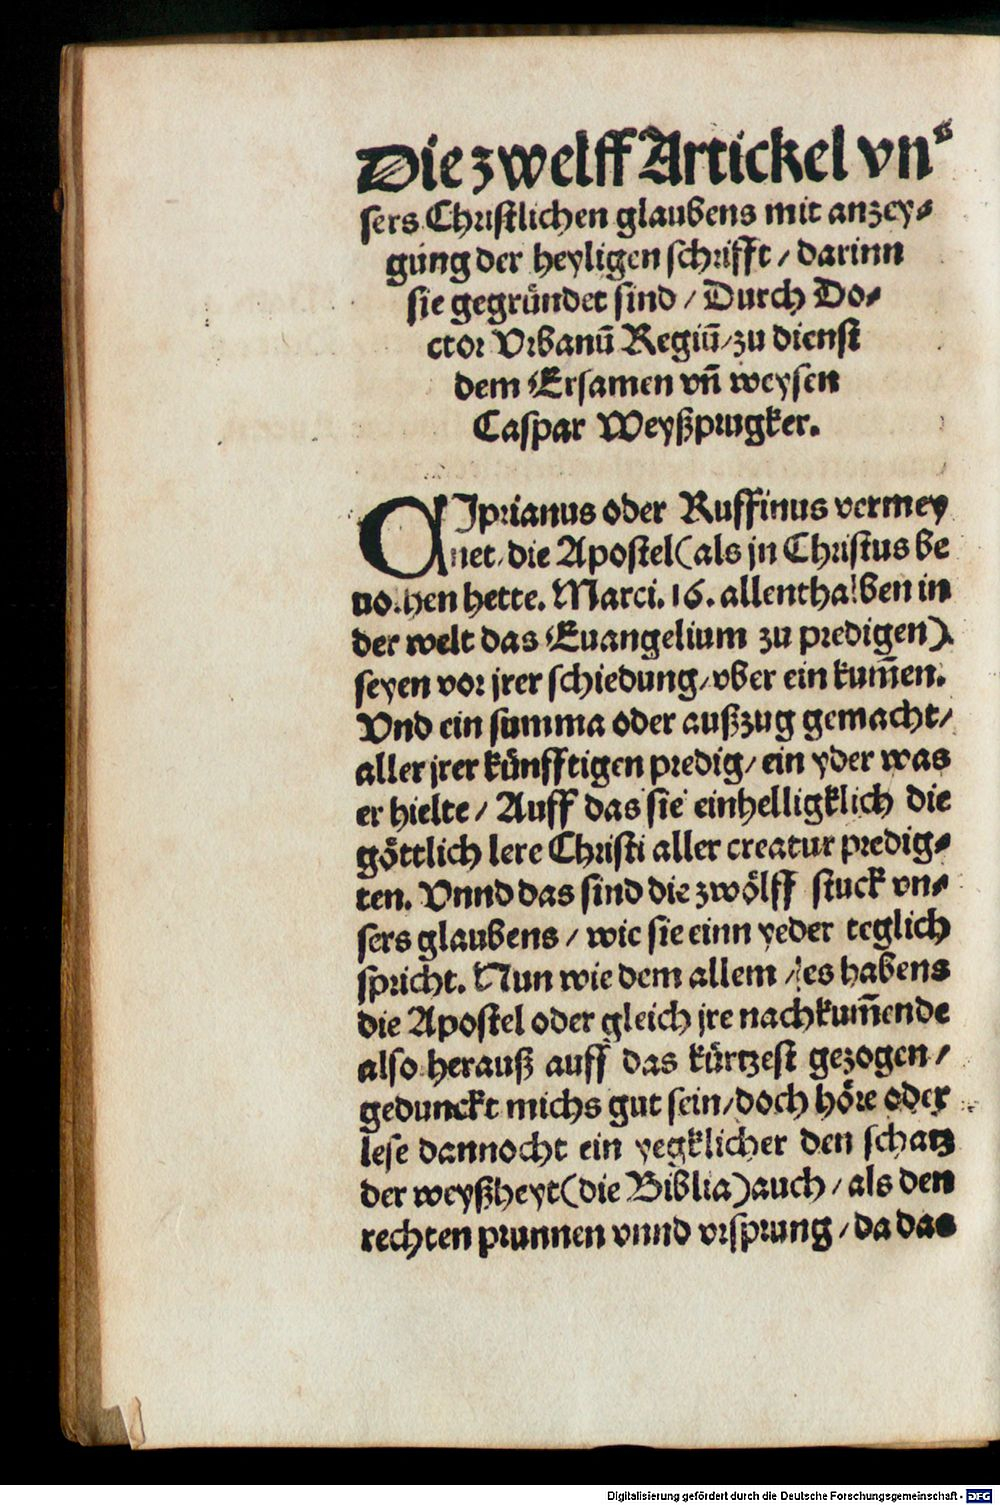 Die zwelff Artickel vn⸗
sers Christlichen glaubens mit anzey⸗
gung der heyligen schrifft / darinn
sie gegründet sind / Durch Do⸗
ctor Vrbanū Regiū / zu dienst
dem Ersamen vn̄ weysen
Caspar Weyßprugker.
CIprianus oder Ruffinus vermey
net / die Apostel (als jn Christus be
uolhen hette. Marci. 16. allenthalben in
der welt das Euangelium zu predigen)
seyen vor jrer schiedung / vber ein kum̄en.
Vnd ein summa oder außzug gemacht /
aller jrer künfftigen predig / ein yder was
er hielte / Auff das sie einhelligklich die
göttlich lere Christi aller creatur predig⸗
ten. Vnnd das sind die zwölff stuck vn⸗
sers glaubens / wie sie einn yeder teglich
spricht. Nun wie dem allem / es habens
die Apostel oder gleich jre nachkum̄ende
also herauß auff das kürtzest gezogen /
gedunckt michs gut sein / doch höre oder
lese dannocht ein yegklicher den schatz
der weyßheyt (die Biblia) auch / als den
rechten prunnen vnnd vrsprung / da das
Digitalisierung gefördert durch die Deutsche Forschungsgemeinschaft - DFG